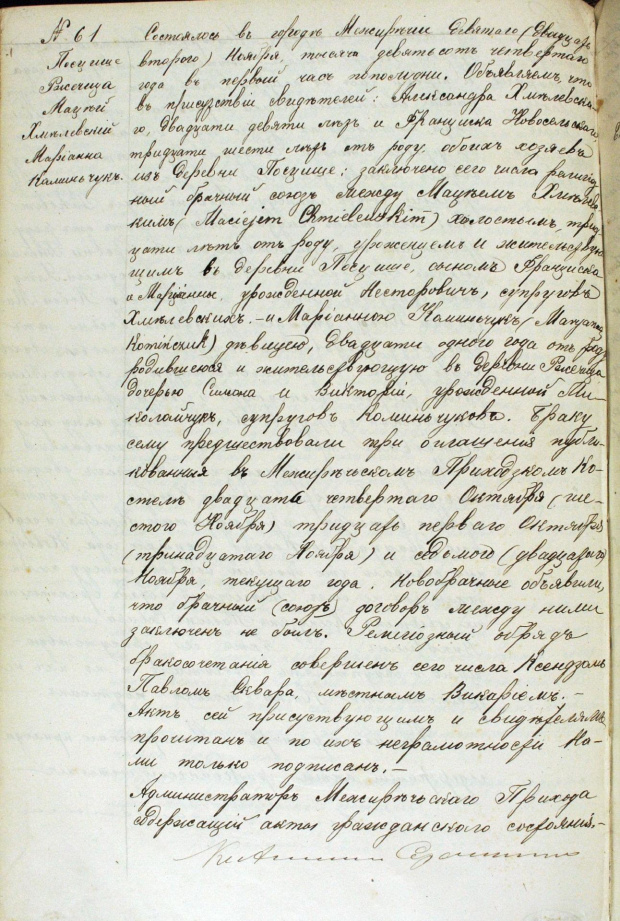 № 61
Посцише
Рысечица
Мацѣй
Хмѣлевскій
Маріанна
Каминьчукъ.
Состоялось въ городѣ Межирѣчіи Девятаго (двадцать
второго) Ноября, тысяча девятьсотъ четвертаго
года въ первый часъ пополудни. Объявляемъ, что
въ присудствіи свидѣтелей: Александра Хмѣлевска-
го, двадцати девяти лѣтъ и Францишка Новосельскаго,
тридцати шести лѣтъ отъ роду, обоихъ хозяевъ
изъ деревни Посцише; заключено сего числа религіоз
ный брачный союзъ между Мацѣемъ Хмѣлев
скимъ (Maciejem Chmielewskim) холостымъ, трид
цати лѣтъ отъ роду, урожденцемъ и жительствую
щимъ въ деревни Посцише, сыномъ Францишка
и Маріанны, урожденной Несторовичъ, супруговъ
Хмѣлевскихъ. – и Маріанною Каминьчукъ (Maryanna
дѣвицею, двадцати одного года отъ роду
родившеюся и жительствующую въ деревни Рысечица
дочерью Симона и Викторіи, урожденной Ми-
колайчукъ, супруговъ Коминьчуковъ. Браку
сему предшествовали три оглашенія публи-
кованныя въ Межирѣческомъ Приходзкомъ Ко-
стелѣ двадцать четвертаго Октября (ше-
стого Ноября) тридцать перваго Октября
(тринадцатаго Ноября) и седьмого (двадцатаго)
Ноября, текущаго года. Новобрачные объявили,
что брачный (союзъ) договоръ между ними
заключенъ не былъ. Религіозный обрядъ
бракосочетанія совершенъ сего числа Ксендзомъ
Павломъ Сквара, мѣстнымъ Викаріемъ. –
Актъ сей присуствующимъ и свидѣтелямъ
прочитанъ и по ихъ неграмотности На-
ми только подписанъ. –
Администраторъ Межирѣчьскаго Прихода
содержащій акты гражданскаго состоянія. –